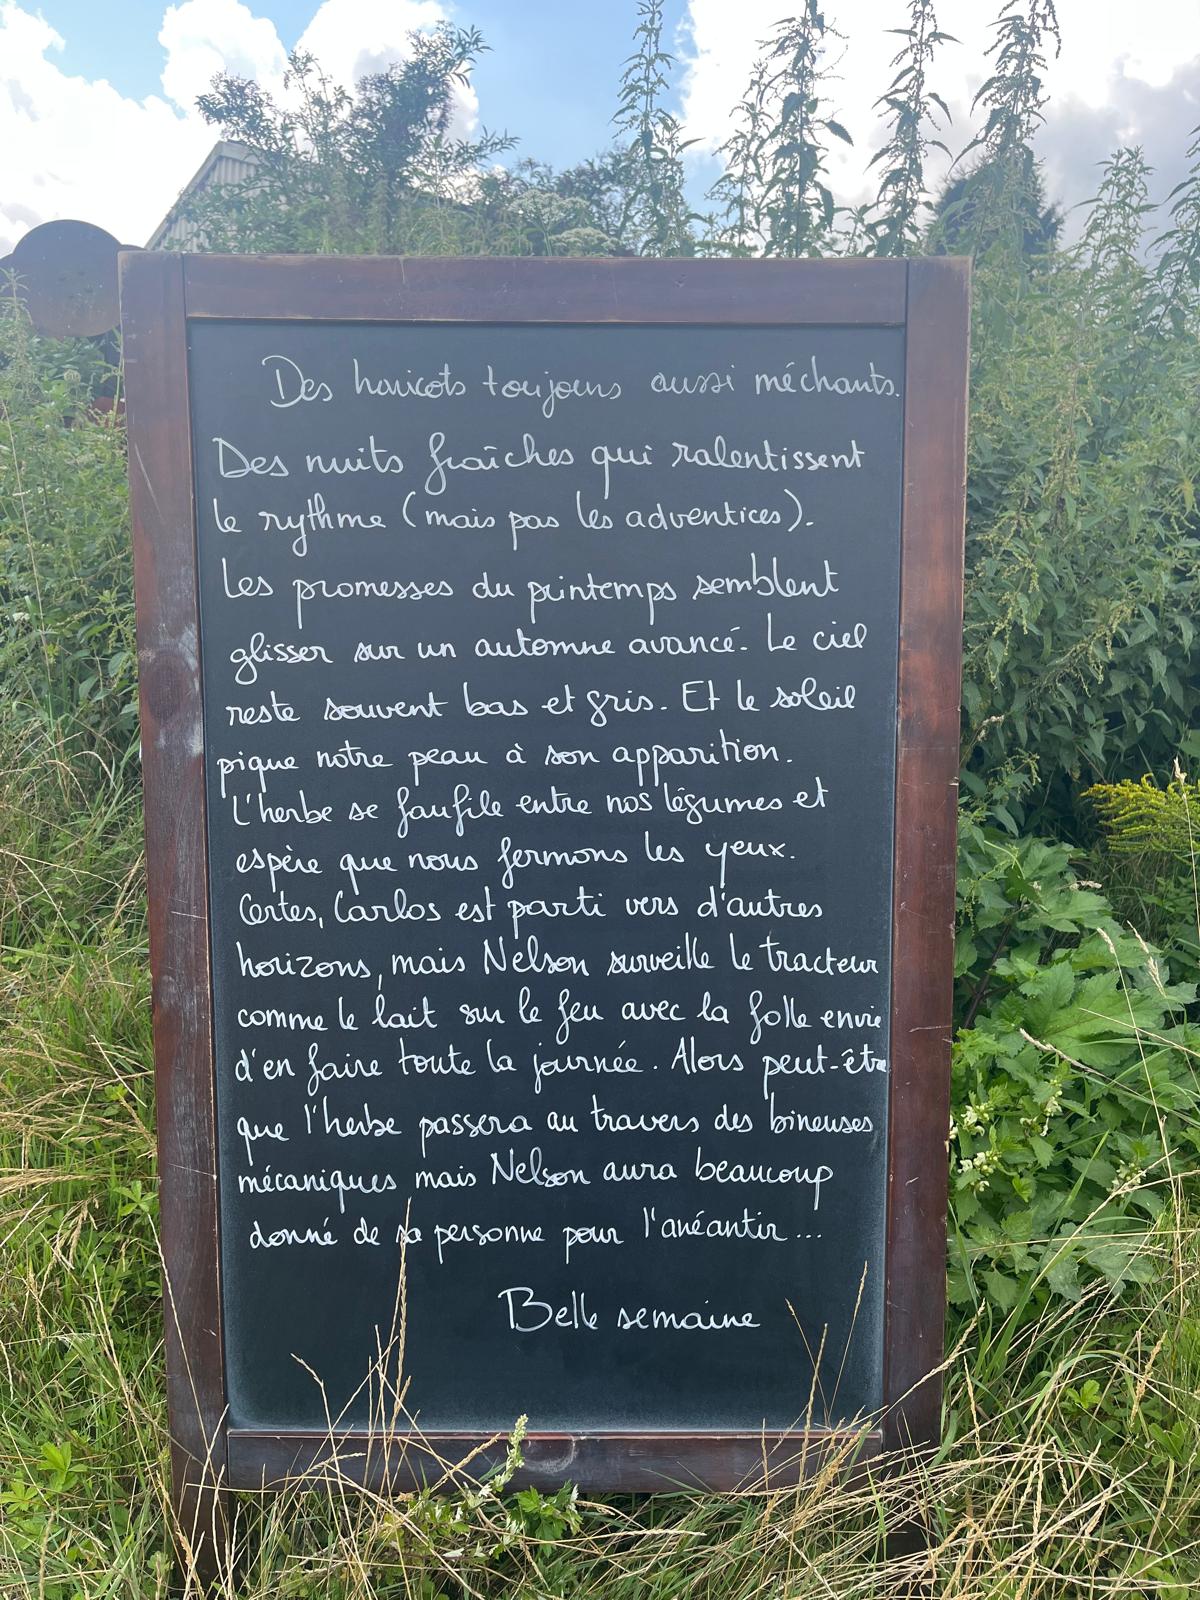 Des haricots toujours aussi méchants.
Des nuits fraîches qui ralentissent
le rythme (mais pas les adventices).
Les promesses du printemps semblent
glisser sur un automne avancé. Le ciel
reste souvent bas et gris. Et le soleil
pique notre peau à son apparition.
L'herbe se faufile entre nos légumes et
espère que nous fermons les yeux.
Certes, Carlos est parti vers d'autres
horizons, mais Nelson surveille le tracteur
comme le lait sur le feu avec la folle envie
d'en faire toute la journée. Alors peut-être
que l'herbe passera au travers des bineuses
mécaniques mais Nelson aura beaucoup
donné de sa personne pour l'anéantir...
Belle semaine